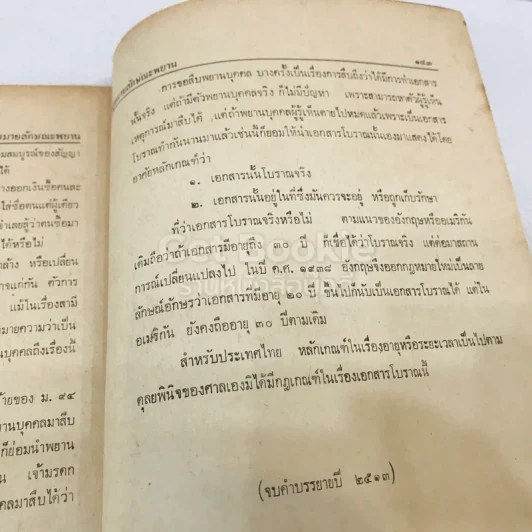 มายลักษณะพยาน
มสมบูรณ์ของสัญญา
ได้
างออกเงินซื้อคนละ
ใส่ชื่อคนแต่ผู้เดียว
จำเลยสู้ว่าคนซื้อมา
ได้หรือไม่
ล้าง หรือเปลี่ยน
าจแก่กัน ตัวการ
แม้ในเรื่องสามี
มายความว่าเป็น
นบุคคลถึงเรื่องนี้
ายของ ม. ๙๔
านบุคคลมาสืบ
ก็ย่อมนำพยาน
น เจ้ามรดก
คลมาสืบได้ว่า
ายลักษณะพยาน
๑๔๓
การขอสืบพยานบุคคล บางครั้งเป็นเรื่องการสืบถึงว่าได้มีการทำเอกสาร
นั้นจริง แต่ถ้ามีตัวพยานบุคคลจริง ก็ไม่มีปัญหา เพราะสามารถหาตัวผู้รู้เห็น
เหตุการณ์มาสืบได้ แต่ถ้าพยานบุคคลผู้รู้เห็นตายไปหมดแล้วเพราะเป็นเอกสาร
โบราณทำกันนานมาแล้วเช่นนี้ก็ยอมให้นำเอกสารโบราณนั้นเองมาแสดงได้โดย
อาศัยหลักเกณฑ์ว่า
๑. เอกสารนั้นโบราณจริง
๒. เอกสารนั้นอยู่ในที่ซึ่งมันควรจะอยู่ หรือถูกเก็บรักษา
ที่ว่าเอกสารโบราณจริงหรือไม่ ตามแนวของอังกฤษหรืออเมริกัน
เดิมถือว่าถ้าเอกสารมีอายุถึง ๓๐ ปี ก็เชื่อได้ว่าโบราณจริง แต่ต่อมาสถาน
การณ์เปลี่ยนแปลงไป ในปี ค.ศ. ๑๙๓๘ อังกฤษจึงออกกฎหมายใหม่เป็นลาย
ลักษณ์อักษรว่าเอกสารที่มีอายุ ๒๐ ปี ขึ้นไปก็นับเป็นเอกสารโบราณได้ แต่ใน
อเมริกัน ยังคงถืออายุ ๓๐ ปีตามเดิม
สำหรับประเทศไทย หลักเกณฑ์ในเรื่องอายุหรือระยะเวลาเป็นไปตาม
ดุลยพินิจของศาลเองมิได้มีกฎเกณฑ์ในเรื่องเอกสารโบราณนี้
(จบคำบรรยายปี ๒๕๑๓)